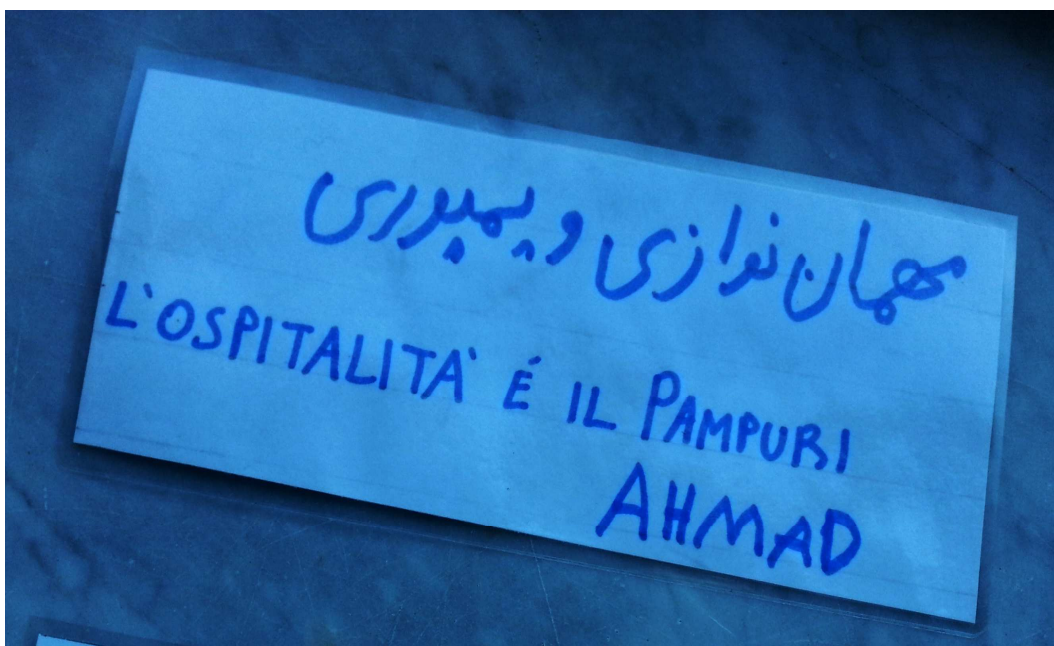 مهمان نوازی و پمپوری
L'OSPITALITA' É IL PAMPURI
AHMAD